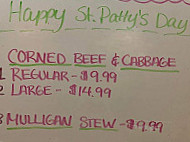 Happy St. Patty's Day
CORNED BEEF & CABBAGE
1 REGULAR - $9.99
2 LARGE - $14.99
3 MULLIGAN STEW - $9.99